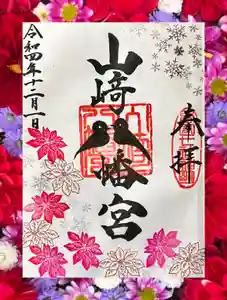 奉拝
山崎八幡宮
令和四年十二月一日